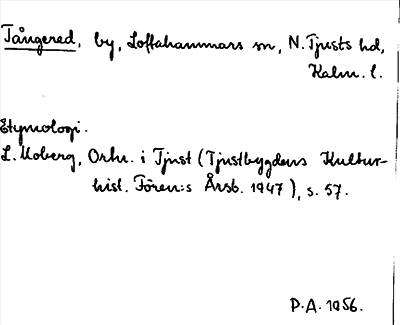 Tångered, by, Loftahammars sn, N. Tjusts hd,
Kalm. l.
Etymologi.
L. Moberg, Ortn. i Tjust (Tjustbygdens Kultur-
hist. Fören:s Årsb. 1947), s. 57.
P.A. 1956.